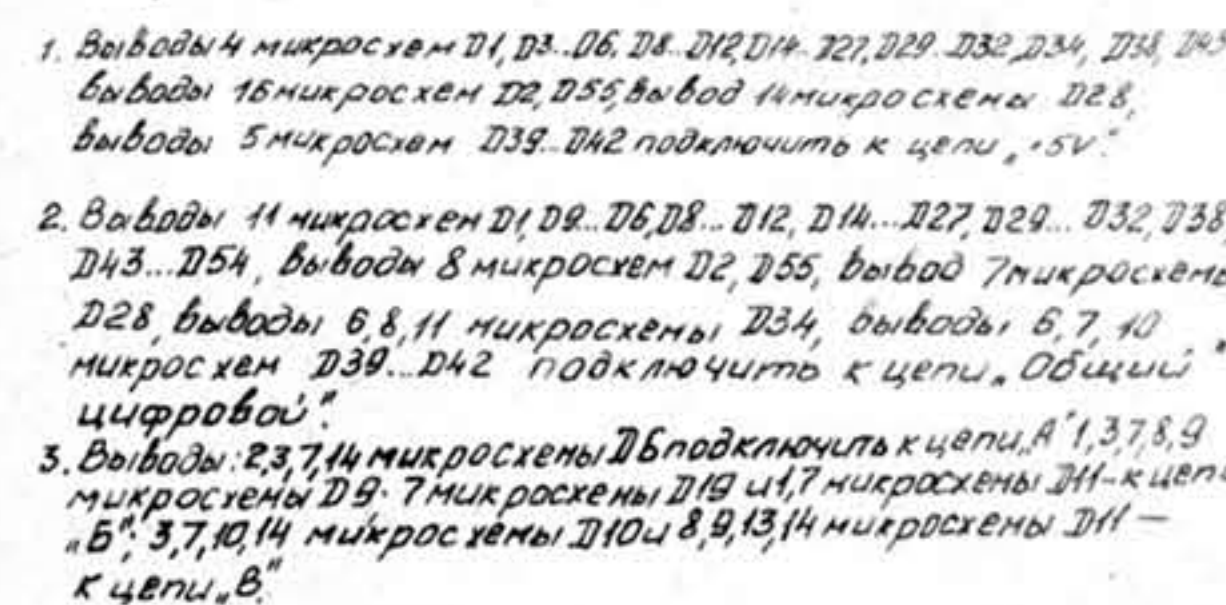 1. Выводы 4 микросхем D1, D3...D6, D8...D12, D14...D27, D29...D32, D34, D38, D43
выводы 16 микросхем D2, D55, вывод 14 микросхемы D28,
выводы 5 микросхем D39...D42 подключить к цепи „+5V".
2. Выводы 11 микросхем D1, D9...D6, D8...D12, D14...D27, D29...D32, D38,
D43...D54, выводы 8 микросхем D2, D55, вывод 7 микросхемы
D28, выводы 6,8,11 микросхемы D34, выводы 6,7,10
микросхем D39...D42 подключить к цепи „Общий
цифровой".
3. Выводы: 2,3,7,14 микросхемы D6 подключить к цепи „А" 1,3,7,8,9
микросхемы D9. 7 микросхемы D19 и 1,7 микросхемы D11 - к цепи
„Б"; 3,7,10,14 микросхемы D10 и 8,9,13,14 микросхемы D11 —
к цепи „В".